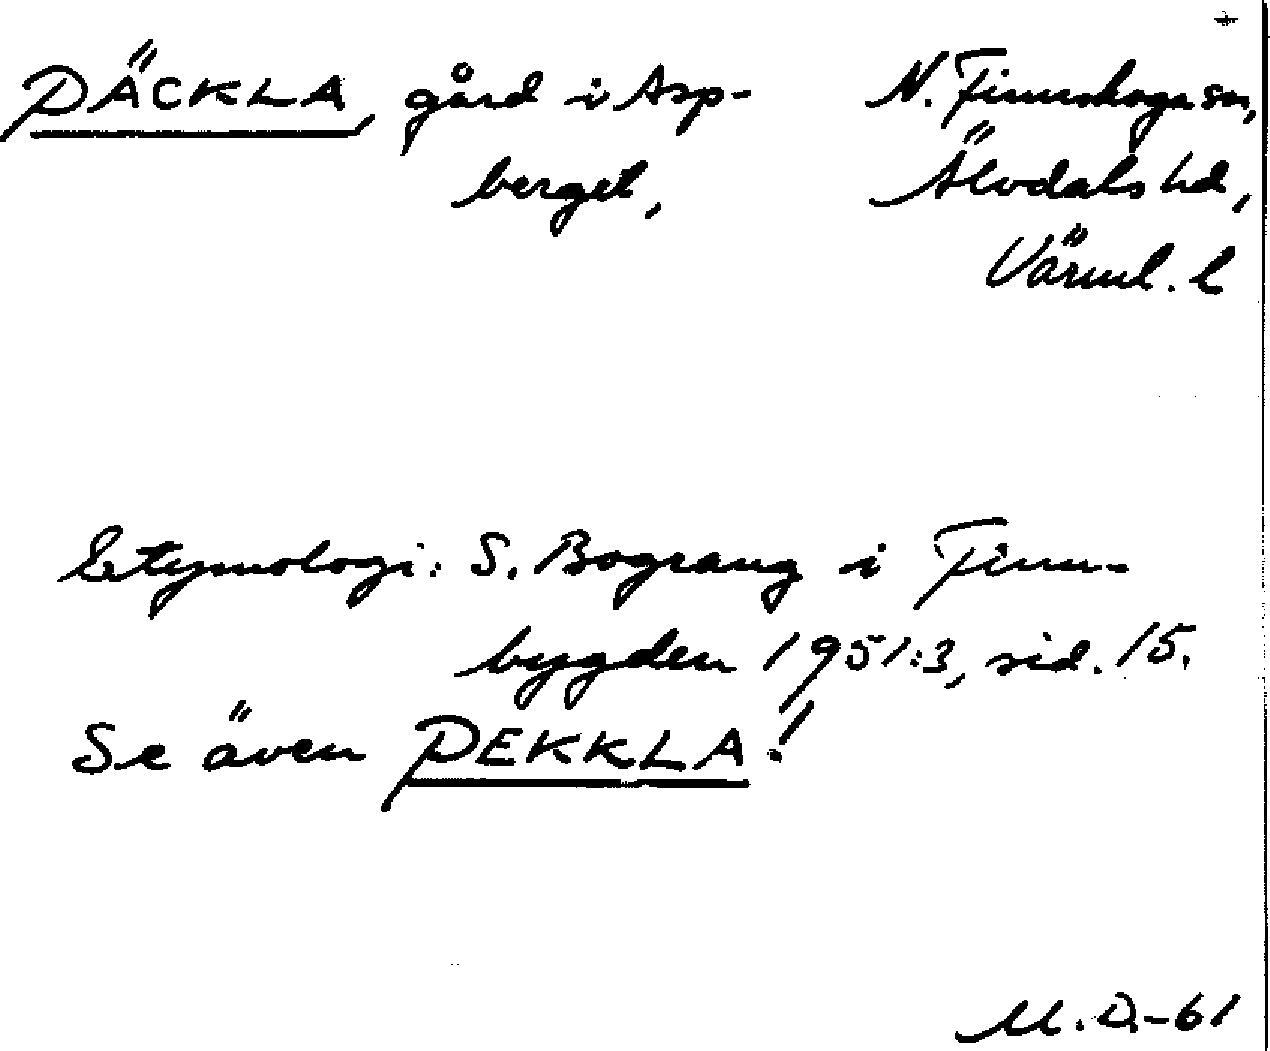 PÄCKLA, gård i Asp-
berget,
N. Finnskoga sn,
Älvdals hd,
Värml. l
Etymologi: S. Bograng i Finn-
bygden 1951:3, sid. 15.
Se även PEKKLA!
M.D.-61